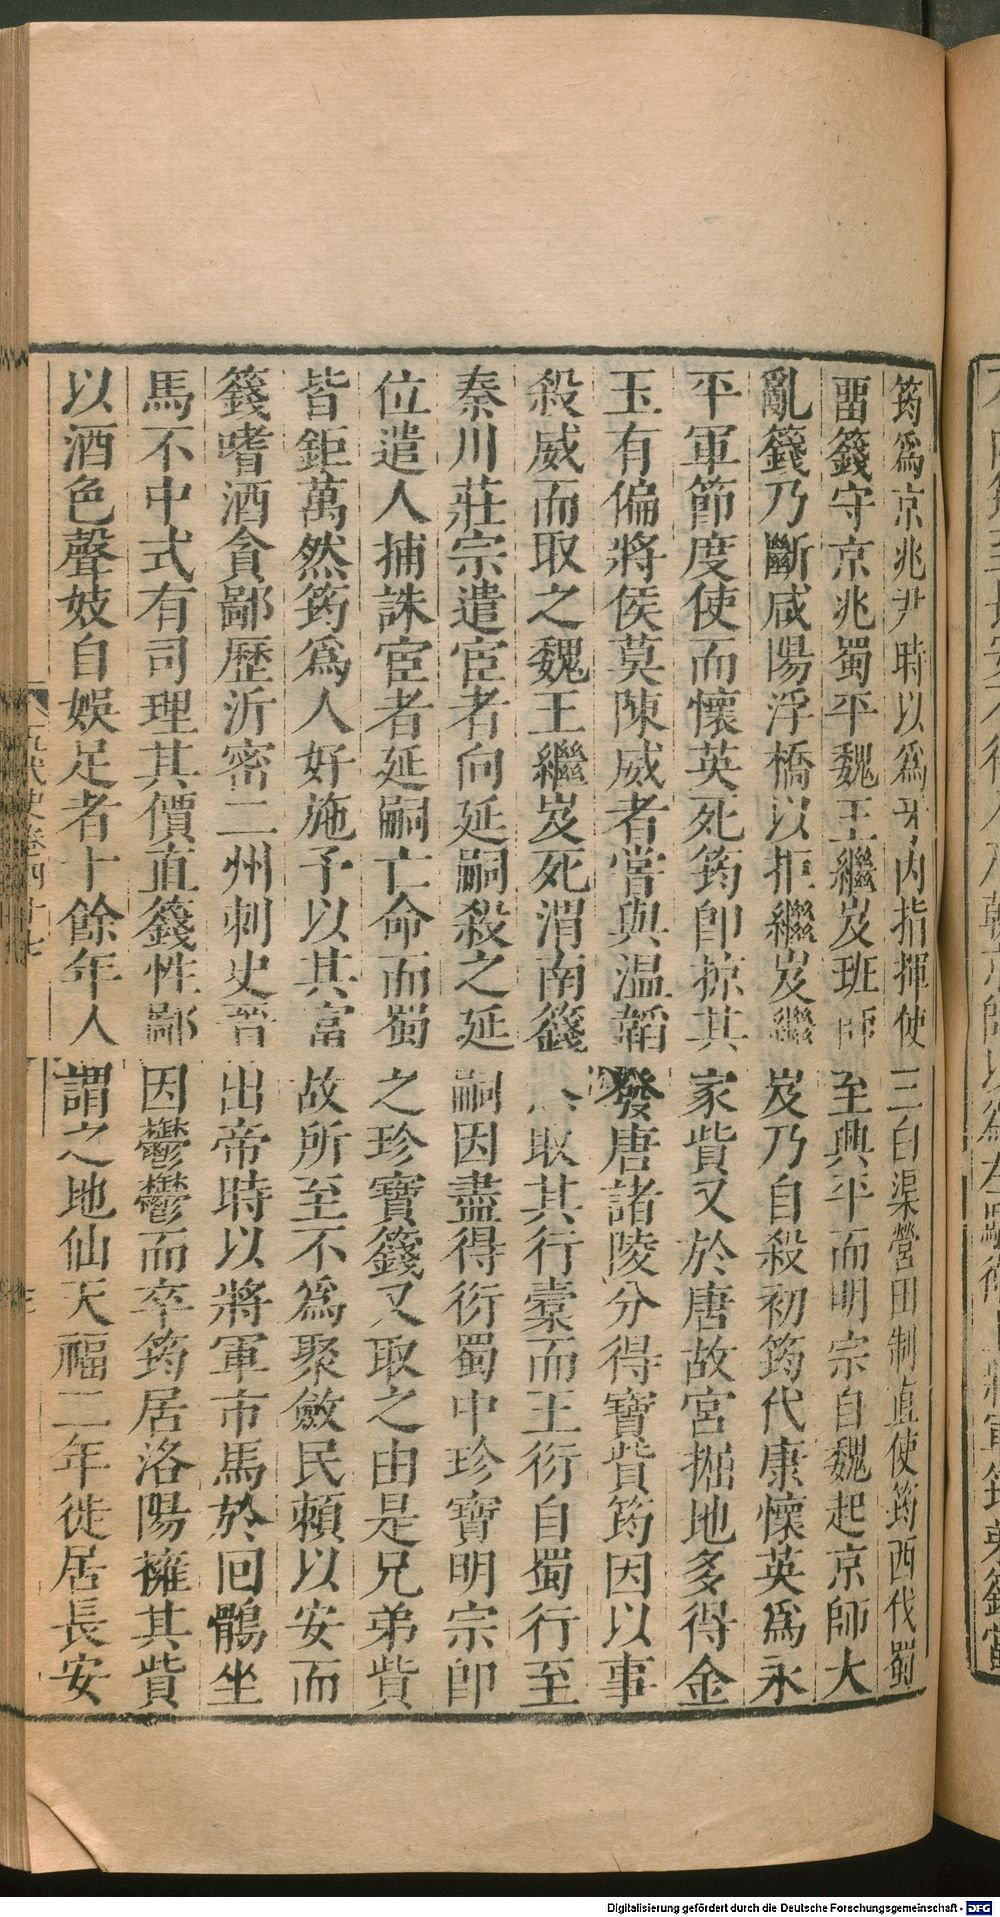 筠爲京兆尹時以爲牙內指揮使三白渠營田制置使筠西伐蜀
畱籛守京兆蜀平魏王繼岌班師至興平而明宗自魏起京師大
亂籛乃斷咸陽浮橋以拒繼岌繼岌乃自殺初筠代康懷英爲永
平軍節度使而懷英死筠卽掠其家貲又於唐故宮掘地多得金
玉有偏將侯莫陳威者嘗與温韜發唐諸陵分得寶貨筠因以事
殺威而取之魏王繼岌死渭南籛取其行橐而王衍自蜀行至
秦川莊宗遣宦者向延嗣殺之延嗣因盡得衍蜀中珍寶明宗卽
位遣人捕誅宦者延嗣亡命而蜀之珍寶籛又取之由是兄弟貲
皆鉅萬然筠爲人好施予以其富故所至不爲聚斂民賴以安而
籛嗜酒貪鄙歷沂密二州刺史晉出帝時以將軍市馬於回鶻坐
馬不中式有司理其價直籛性鄙因鬱鬱而卒筠居洛陽擁其貲
以酒色聲妓自娛足者十餘年人謂之地仙天福二年徙居長安
五代史卷四十七
Digitalisierung gefördert durch die Deutsche Forschungsgemeinschaft - DFG